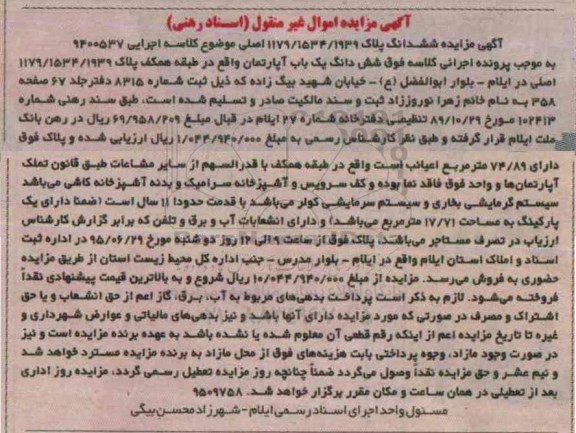 آگهی مزایده اموال غیر منقول (اسناد رهنی)
آگهی مزایده ششدانگ پلاک ۱۱۷۹/۱۵۳۴/۱۹۳۹ اصلی موضوع کلاسه اجرایی ۹۴۰۰۵۳۷
به موجب پرونده اجرائی کلاسه فوق شش دانگ یک باب آپارتمان واقع در طبقه همکف پلاک ۱۱۷۹/۱۵۳۴/۱۹۳۹
اصلی در ایلام - بلوار ابوالفضل (ع) - خیابان شهید بیگ زاده که ذیل ثبت شماره ۸۳۱۵ دفتر جلد ۶۷ صفحه
۳۵۸ به نام خانم زهرا نوروززاد ثبت و سند مالکیت صادر و تسلیم شده است، طبق سند رهنی شماره
۱۰۲۴۱۳ مورخ ۸۹/۱۰/۲۹ تنظیمی دفترخانه شماره ۲۷ ایلام در قبال مبلغ ۶۹/۹۵۸/۲۰۹ ریال در رهن بانک
ملت ایلام قرار گرفته و طبق نظر کارشناس رسمی به مبلغ ۱/۰۴۴/۹۴۰/۰۰۰ ریال ارزیابی شده و پلاک فوق
دارای ۷۴/۸۹ مترمربع اعیانی است واقع در طبقه همکف با قدرالسهم از سایر مشاعات طبق قانون تملک
آپارتمان‌ها و واحد فوق فاقد نما بوده و کف سرویس و آشپزخانه سرامیک و بدنه آشپزخانه کاشی می‌باشد
سیستم گرمایشی بخاری و سیستم سرمایشی کولر می‌باشد با قدمت حدودا ۱۱ سال است (ضمنا دارای یک
پارکینگ به مساحت ۱۷/۷۱ مترمربع می‌باشد) و دارای انشعابات آب و برق و تلفن که برابر گزارش کارشناس
ارزیاب در تصرف مستاجر می‌باشد، پلاک فوق از ساعت ۹ الی ۱۲ روز دو شنبه مورخ ۹۵/۰۶/۲۹ در اداره ثبت
اسناد و املاک استان ایلام واقع در ایلام - بلوار مدرس - جنب اداره کل محیط زیست استان از طریق مزایده
حضوری به فروش می‌رسد. مزایده از مبلغ ۱۰/۰۴۴/۹۴۰/۰۰۰ ریال شروع و به بالاترین قیمت پیشنهادی نقداً
فروخته می‌شود. لازم به ذکر است پرداخت بدهی‌های مربوط به آب، برق، گاز اعم از حق انشعاب و یا حق
اشتراک و مصرف در صورتی که مورد مزایده دارای آنها باشد و نیز بدهی‌های مالیاتی و عوارض شهرداری و
غیره تا تاریخ مزایده اعم از اینکه رقم قطعی آن معلوم شده یا نشده باشد به عهده برنده مزایده است و نیز
در صورت وجود مازاد، وجوه پرداختی بابت هزینه‌های فوق از محل مازاد به برنده مزایده مسترد خواهد شد
و نیم عشر و حق مزایده نقداً وصول می‌گردد ضمناً چنانچه روز مزایده تعطیل رسمی گردد، مزایده روز اداری
بعد از تعطیلی در همان ساعت و مکان مقرر برگزار خواهد شد. ۹۵۰۹۷۵۸
مسئول واحد اجرای اسناد رسمی ایلام - شهرزاد محسن بیگی